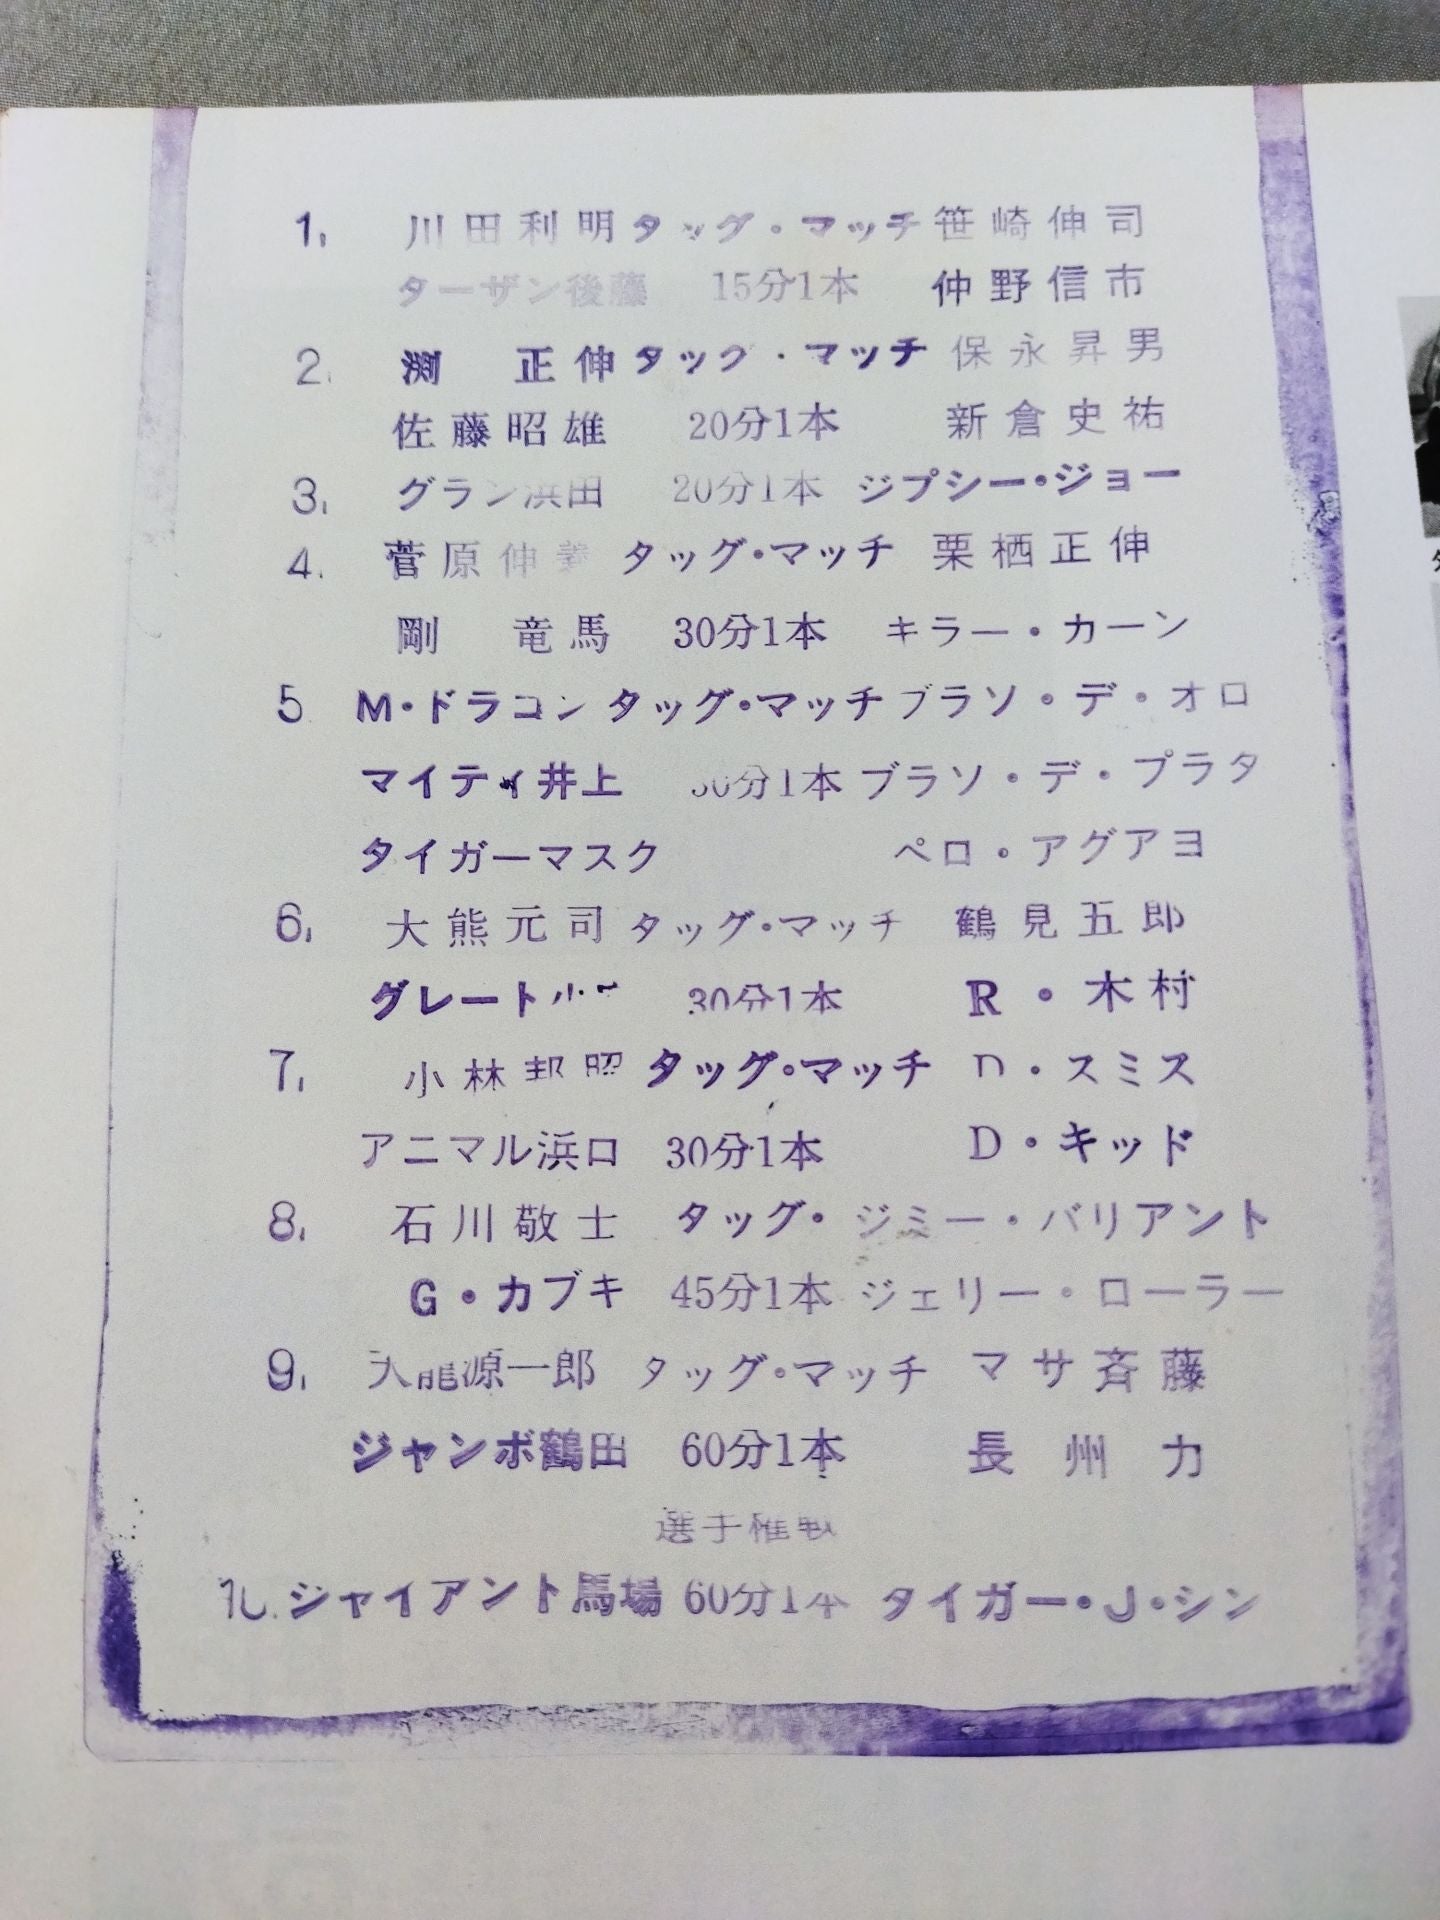 1. 川田利明 タッグ・マッチ 笹崎伸司
ターザン後藤 15分1本 仲野信市
2. 渕 正伸 タッグ・マッチ 保永昇男
佐藤昭雄 20分1本 新倉史祐
3. グラン浜田 20分1本 ジプシー・ジョー
4. 菅原伸義 タッグ・マッチ 栗栖正伸
剛 竜馬 30分1本 キラー・カーン
5 M・ドラゴン タッグ・マッチ ブラソ・デ・オロ
マイティ井上 30分1本 ブラソ・デ・プラタ
タイガーマスク ペロ・アグアヨ
6. 大熊元司 タッグ・マッチ 鶴見五郎
グレート 30分1本 R・木村
7. 小林邦昭 タッグ・マッチ D・スミス
アニマル浜口 30分1本 D・キッド
8. 石川敬士 タッグ・ ジミー・バリアント
G・カブキ 45分1本 ジェリー・ローラー
9. 天龍源一郎 タッグ・マッチ マサ斉藤
ジャンボ鶴田 60分1本 長州力
選手権戦
10. ジャイアント馬場 60分1本 タイガー・J・シン